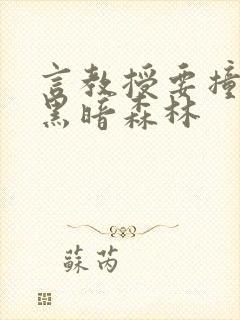 言教授要撞
黑暗森林
蘇芮